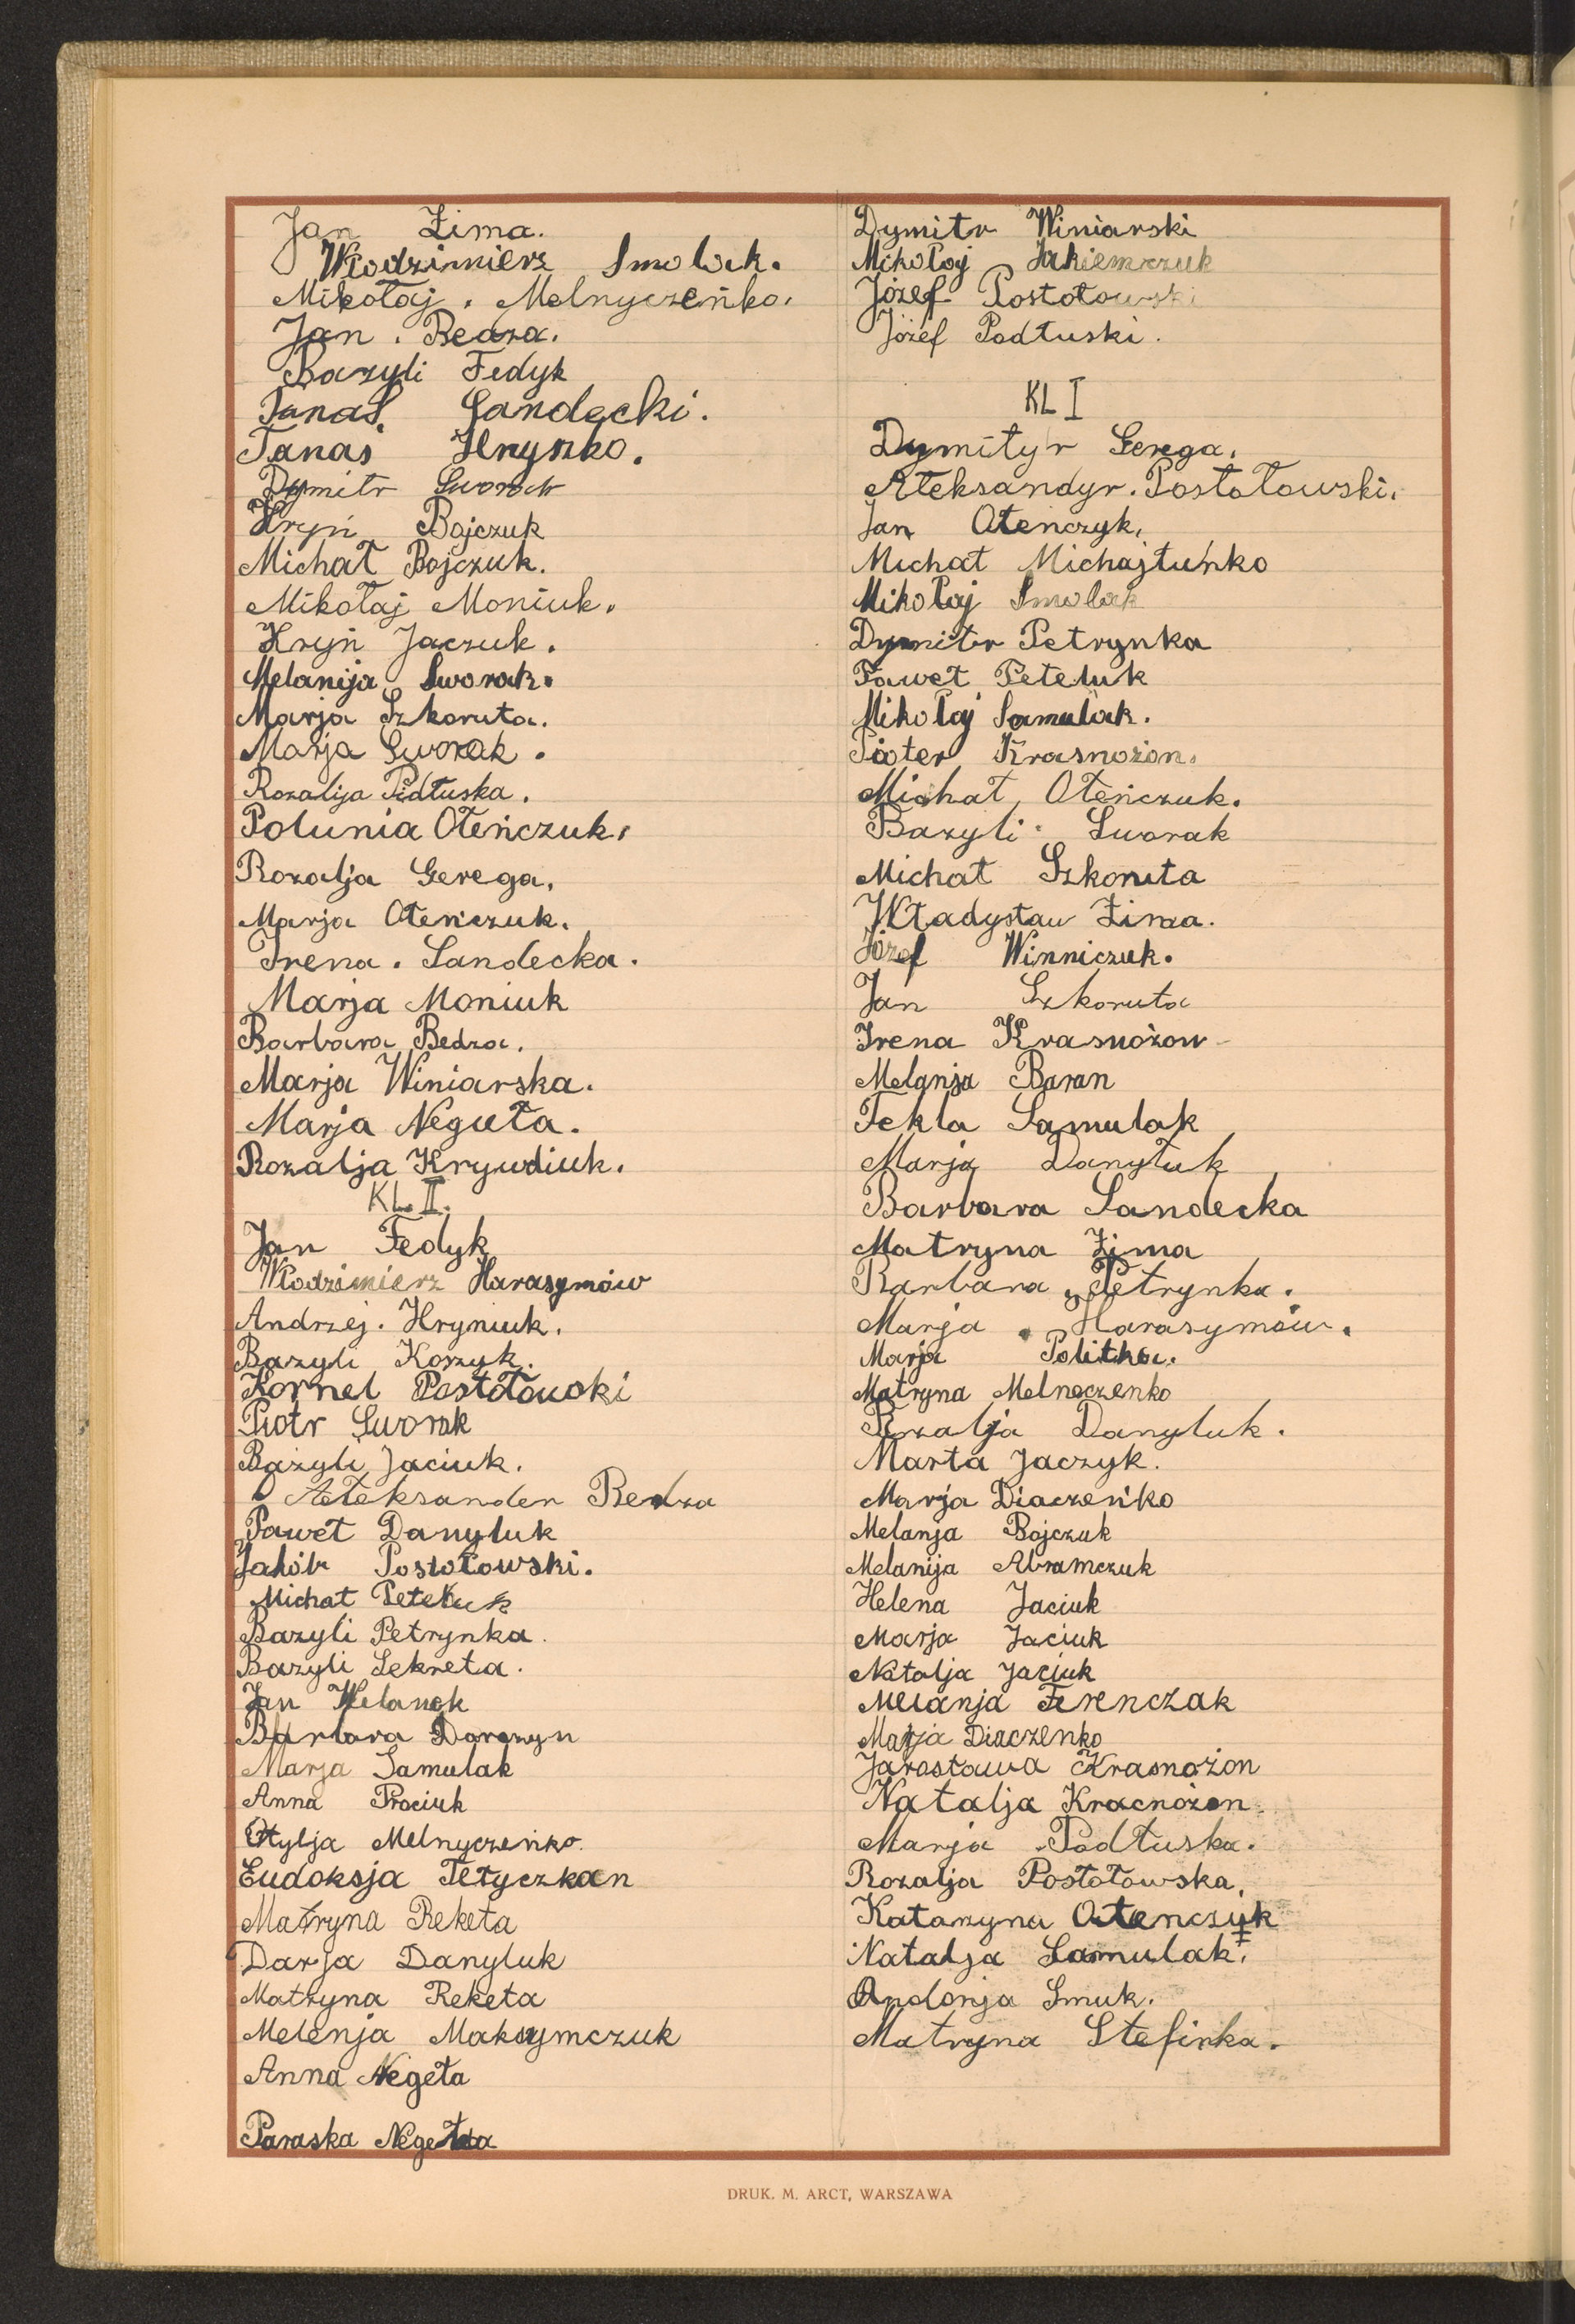 Jan Zima.
Włodzimierz Smolak.
Mikołaj. Melnyczeńko.
Jan. Bedza.
Bazyli Fedyk
Tanas. Sandecki.
Tanas Hryńko.
Dymitr Sworak
Hryń Bojczuk
Michał Bojczuk.
Mikołaj Moniuk.
Hryń Jaczuk.
Melanija Sworak.
Marja Szkoruta.
Marja Sworak.
Rozalija Pidłuska.
Polunia Oteńczuk.
Rozalja Gerega.
Marja Oteńczuk.
Irena. Sandecka.
Marja Moniuk
Barbara Bedza.
Marja Winiarska.
Marja Neguta.
Rozalja Krywdiuk.
KL. II.
Jan Fedyk
Włodzimierz Harasymów
Andrzej. Hryniuk.
Bazyli Koszyk.
Kornel Postołowski
Piotr Sworak
Bazyli Jaciuk.
Ałeksander Bedza
Paweł Danyluk
Jakób Postołowski.
Michał Peteluk
Bazyli Petrynka.
Bazyli Sekreta.
Jan
Barbara
Marja Samulak
Anna Prociuk
Otylja Melnyczeńko.
Eudoksja Tetyczkan
Matryna Reketa
Darja Danyluk
Matryna Reketa
Melenja Maksymczuk
Anna Negeta
Paraska Negeta
Dymitr Winiarski
Mikołaj Jakiemczuk
Józef Postołowski
Józef Podłuski.
KL I
Dymityr Gerega.
Ałeksandyr. Postołowski.
Jan Otenczyk.
Michał Michajłuńko
Mikołaj Smolak
Dymitr Petrynka
Paweł Peteluk
Mikołaj Samulak.
Pioter Krasnożon.
Michał Oteńczuk.
Bazyli Sworak
Michał Szkoruta
Władysław Zima.
Józef Winniczuk.
Jan Szkoruta
Irena Krasnożon
Melanja Baran
Tekla Samulak
Marja Danyłuk
Barbara Sandecka
Matryna Zima
Barbara Petrynka.
Marja. Harasymów.
Marja Politka.
Matryna Melneczenko
Rozalja Danyluk.
Marta Jaczyk.
Marja Diaczeńko
Melanja Bojczuk
Melanija Abramczuk
Helena Jaciuk
Marja Jaciuk
Natalja Jaciuk
Melanja Ferenczak
Marja Diaczenko
Jarosława Krasnożon
Natalja Kracnożon
Marja Podłuska.
Rozalja Postołowska.
Katarzyna Otenczuk
Natalja Samulak.
Andonja Smuk.
Matryna Stefinka.
DRUK. M. ARCT, WARSZAWA